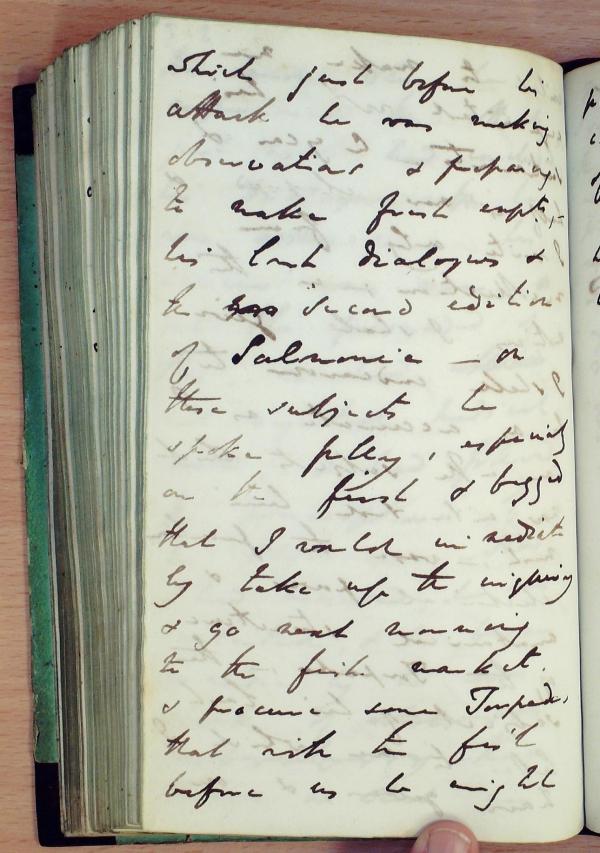 which just before his
attack he was making
observations & preparing
to make fresh expts,
his last dialogues &
the second edition
of Salmonia — on
these subjects he
spoke fully, especially
on the first & begged
that I would immediate
ly take up the enquiry
& go next morning
to the fish market.
& procure some Torpedos,
that with the fish
before us he might